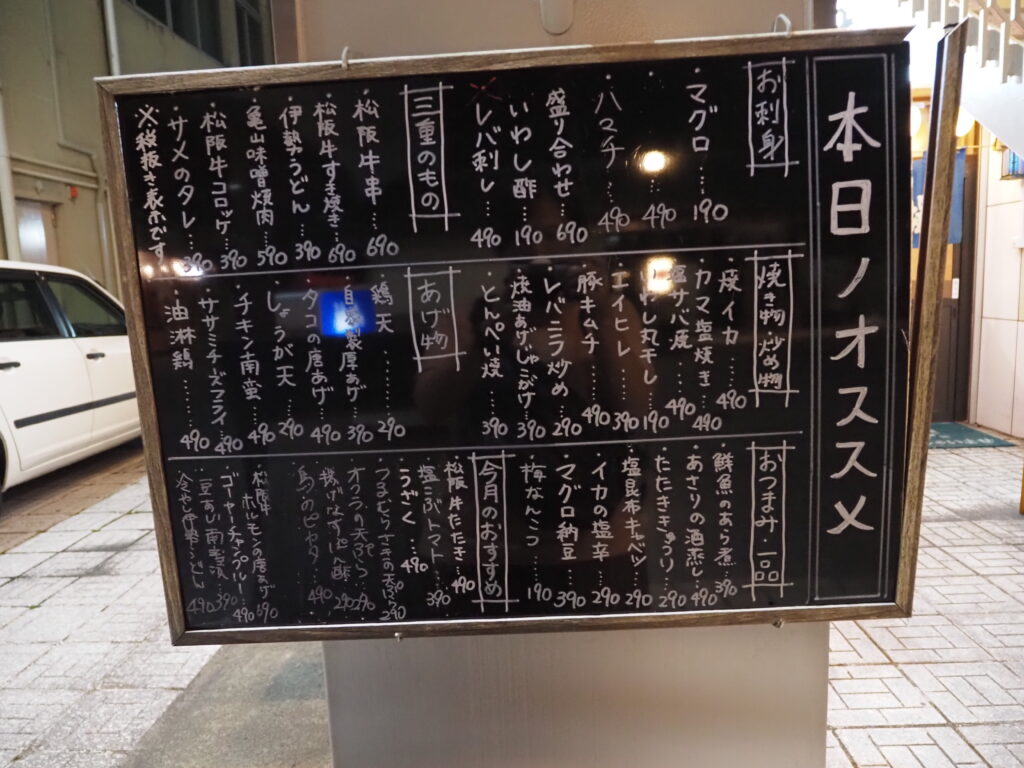 本日ノオススメ
お刺身
・マグロ…190
・…490
・ハマチ…490
盛り合わせ…690
・いわし酢…190
×レバ刺し…490
三重のもの
・松阪牛串…690
・松阪牛すき焼き…690
・伊勢うどん…390
・亀山味噌焼肉…590
・松阪牛コロッケ…390
・サメのタレ…390
※税抜き表示です
焼き物・炒め物
・焼イカ…490
・カマ塩焼き…490
・塩サバ焼…490
・いわし丸干し…190
・エイヒレ…390
・豚キムチ…490
・レバニラ炒め…290
・焼油あげ、じゃこがけ…390
・とんぺい焼…390
あげ物
・鶏天…290
・自家製厚あげ…390
・タコの唐あげ…490
・しょうが天…290
・チキン南蛮…490
・ササミチーズフライ…490
・油淋鶏…490
おつまみ・一品
・鮮魚のあら煮…390
・あさりの酒蒸し…490
・たたききゅうり…290
・塩昆布キャベツ…290
・イカの塩辛…290
・マグロ納豆…390
・梅なんこつ…190
今月のおすすめ
・松阪牛たたき…490
・塩こぶトマト…390
・うざく…490
・つまむらさきの天ぷら…290
・オクラの天ぷら…290
・揚げなすポン酢…290
490
・松阪牛ホルモンの唐あげ 690
・ゴーヤーチャンプルー…490
・豆あじ南蛮漬 390
・冷やし伊勢うどん 490